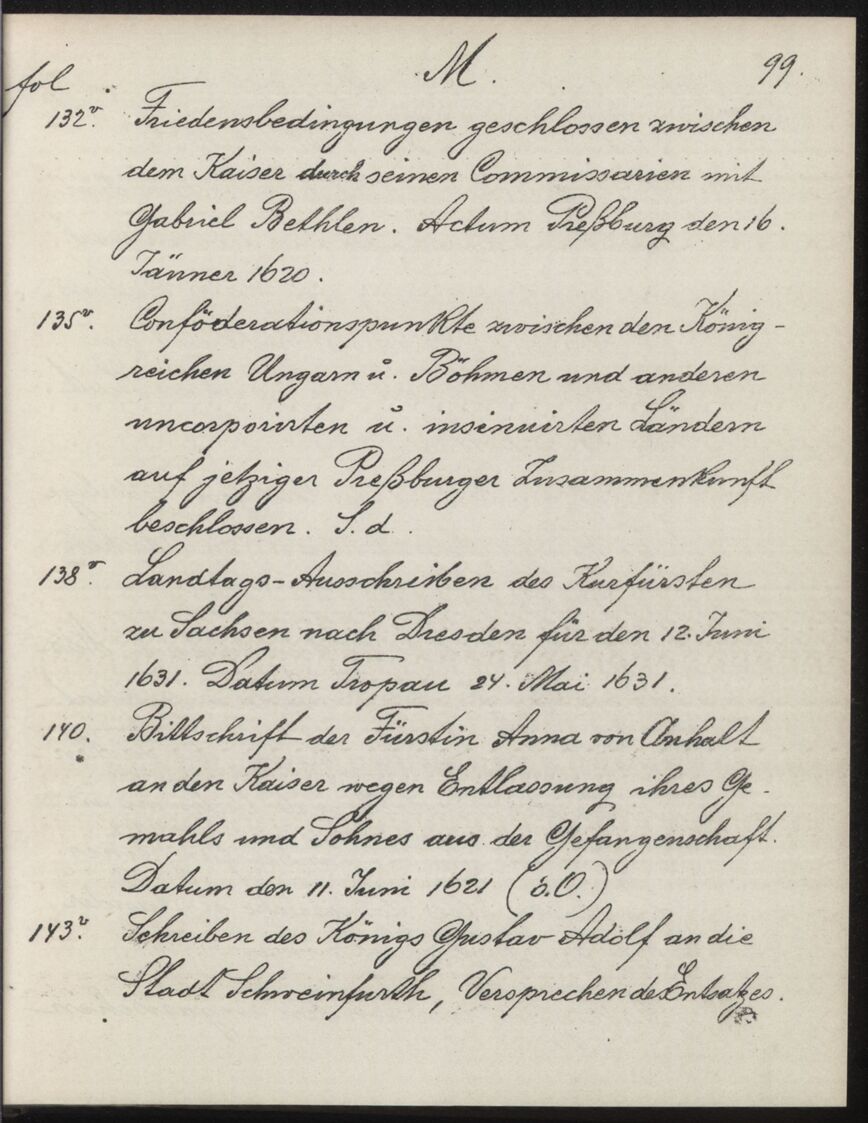 M. 99.
fol
132v. Friedensbedingungen geschlossen zwischen
dem Kaiser durch seinen Commissarien mit
Gabriel Bethlen. Actum Preßburg den 16.
Jänner 1620.
135v. Conföderationspunkte zwischen den König-
reichen Ungarn u. Böhmen und anderen
uncorporirten u. insinuirten Ländern
auf jetziger Preßburger Zusammenkunft
beschlossen. S. d.
138v. Landtags-Ausschreiben des Kurfürsten
zu Sachsen nach Dresden für den 12. Juni
1631. Datum Tropau 24. Mai 1631.
140. Bittschrift der Fürstin Anna von Anhalt
an den Kaiser wegen Entlassung ihres Ge-
mahls und Sohnes aus der Gefangenschaft.
Datum den 11. Juni 1621 (o.O.)
143v. Schreiben des Königs Gustav Adolf an die
Stadt Schweinfurth, Versprechen des Entsatzes.